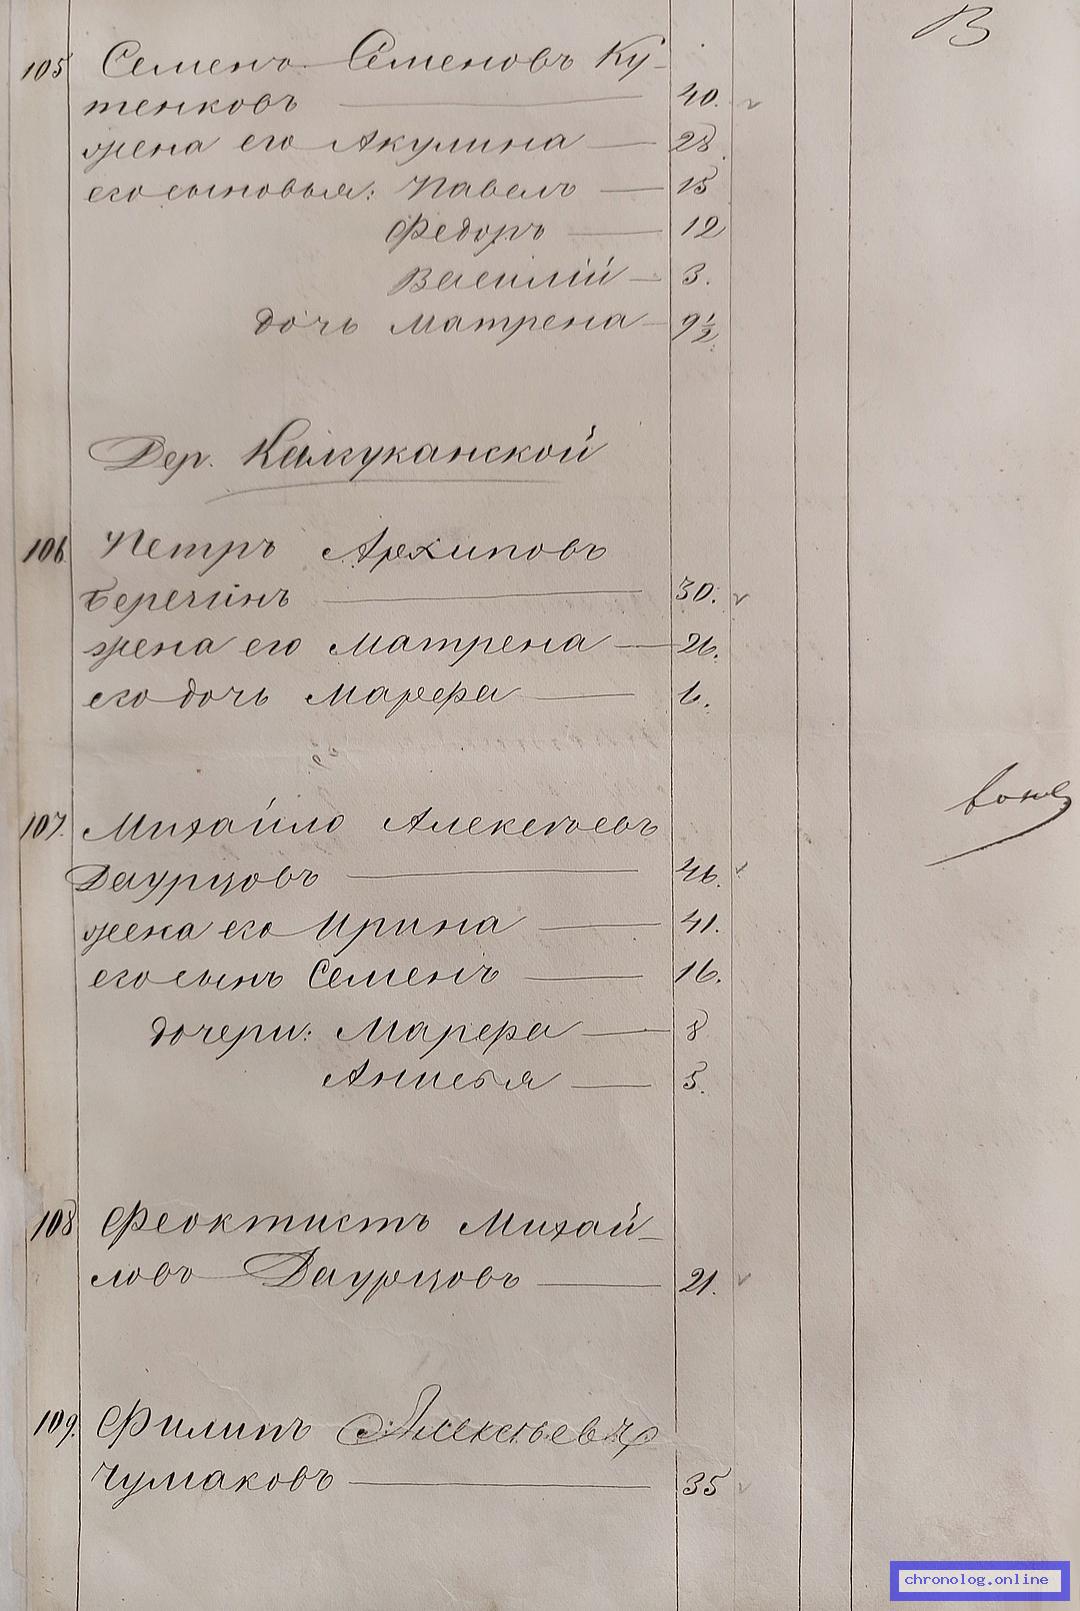 В
105 Семенъ Семеновъ Ку-
тенковъ 40.
жена его Акулина 28
его сыновья: Павелъ 15
Федоръ 12
Василій 3.
дочь Матрена 9½
Дер. Калгуканской
106 Петръ Архиповъ
Беречинъ 30.
жена его Матрена 26.
его дочь Марфа 6.
107. Михайло Алексѣевъ
Даурцовъ 46.
жена его Ирина 41.
его сынъ Семенъ 16.
дочери: Марфа 8
Анисья 5.
108 Феоктистъ Михай-
ловъ Даурцовъ 21.
109. Филипъ Алексѣевъ
Чумаковъ 35
chronolog.online